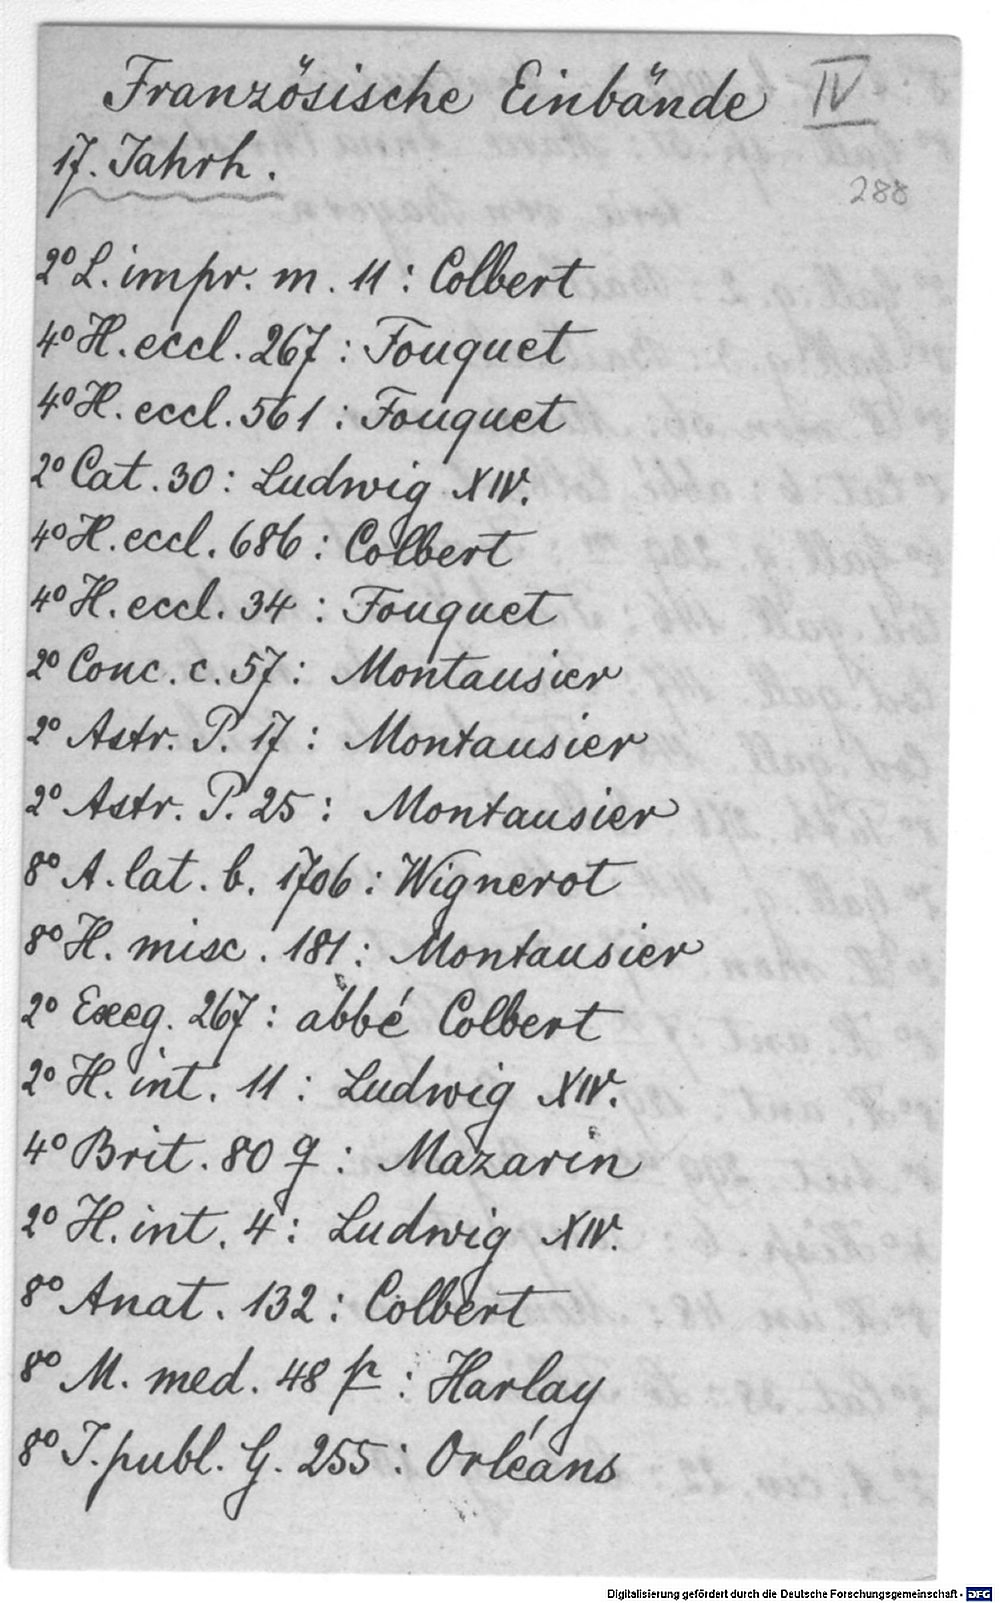 Französische Einbände IV
17. Jahrh.
288
2° L. impr. m. 11 : Colbert
4° H. eccl. 267 : Fouquet
4° H. eccl. 561 : Fouquet
2° Cat. 30 : Ludwig XIV.
4° H. eccl. 686 : Colbert
4° H. eccl. 34 : Fouquet
2° Conc. c. 57 : Montausier
2° Astr. P. 17 : Montausier
2° Astr. P. 25 : Montausier
8° A. lat. b. 1706 : Wignerot
8° H. misc. 181 : Montausier
2° Exeg. 267 : abbé Colbert
2° H. int. 11 : Ludwig XIV.
4° Brit. 80 q : Mazarin
2° H. int. 4 : Ludwig XIV.
8° Anat. 132 : Colbert
8° M. med. 48 p : Harlay
8° J. publ. G. 255 : Orléans
Digitalisierung gefördert durch die Deutsche Forschungsgemeinschaft - DFG